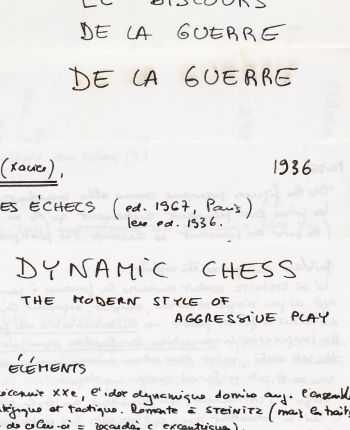 LE DISCOURS
DE LA GUERRE
DE LA GUERRE
(Xavier), 1936
ES ÉCHECS (ed. 1967, Paris)
1ere ed. 1936.
DYNAMIC CHESS
THE MODERN STYLE OF
AGGRESSIVE PLAY
ÉLÉMENTS
XXe, l'idée dynamique domine auj. l'ensemble
et tactique. Remonte à STEINITZ (mais le traité
de celui-ci = excentrique).